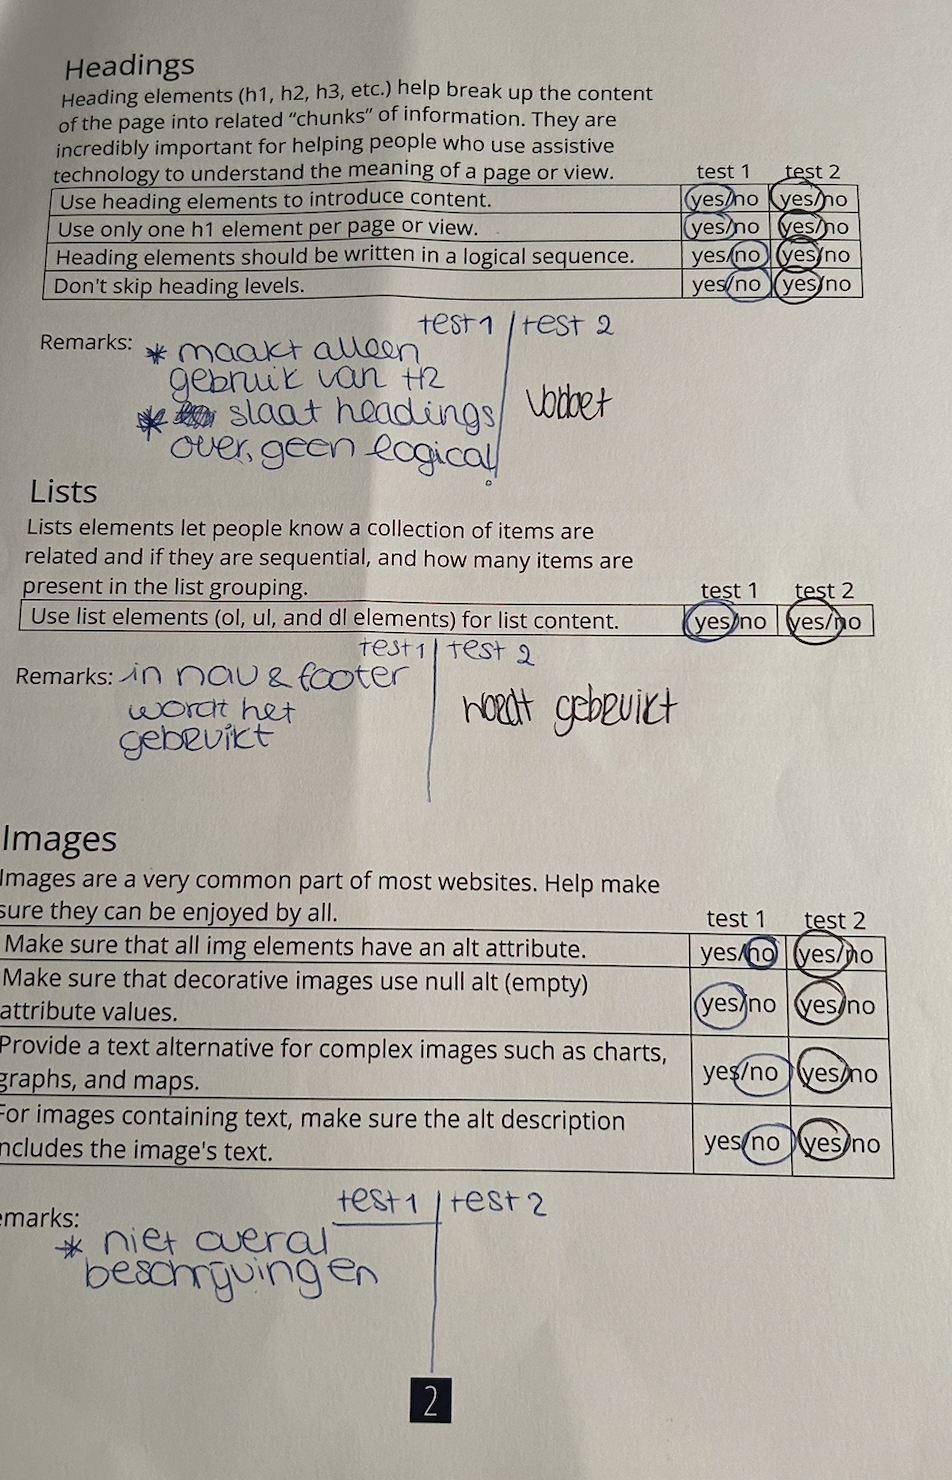 Headings
Heading elements (h1, h2, h3, etc.) help break up the content
of the page into related “chunks” of information. They are
incredibly important for helping people who use assistive
technology to understand the meaning of a page or view. test 1 test 2
Use heading elements to introduce content. yes/no yes/no
Use only one h1 element per page or view. yes/no yes/no
Heading elements should be written in a logical sequence. yes/no yes/no
Don't skip heading levels. yes/no yes/no
test 1 test 2
Remarks: * maakt alleen
gebruik van H2
* slaat headings
over, geen logical!
Voldoet
Lists
Lists elements let people know a collection of items are
related and if they are sequential, and how many items are
present in the list grouping. test 1 test 2
Use list elements (ol, ul, and dl elements) for list content. yes/no yes/no
test 1 test 2
Remarks: in nav & footer
wordt het
gebruikt
wordt gebruikt
Images
Images are a very common part of most websites. Help make
sure they can be enjoyed by all. test 1 test 2
Make sure that all img elements have an alt attribute. yes/no yes/no
Make sure that decorative images use null alt (empty)
attribute values. yes/no yes/no
Provide a text alternative for complex images such as charts,
graphs, and maps. yes/no yes/no
For images containing text, make sure the alt description
includes the image's text. yes/no yes/no
test 1 test 2
emarks:
* niet overal
beschrijvingen
2